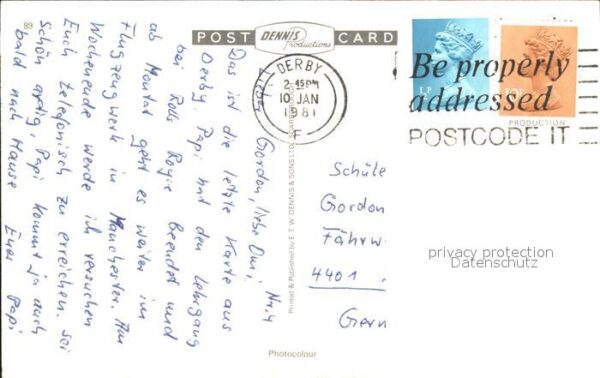 89
POST
DENNIS
Productions
CARD
Gordon, liebe Omi, Nr. 4
Das ist die letzte Karte aus
Derby. Papi hat den Lehrgang
bei Rolls Royce beendet und
ab Montag geht es weiter im
Flugzeugwerk in Manchester. Am
Wochenende werde ich versuchen
Euch telefonisch zu erreichen. Sei
schön artig, Papi kommt ja auch
bald nach Hause Euer Papi
Printed & Published by E.T.W. DENNIS & SONS LTD.
Photocolour
DERBY
2-45PM
10 JAN
1981
F
Be properly
addressed
POSTCODE IT
PRODUCTION
Schüle
Gordon
Fährw
4401
Germ
privacy protection
Datenschutz